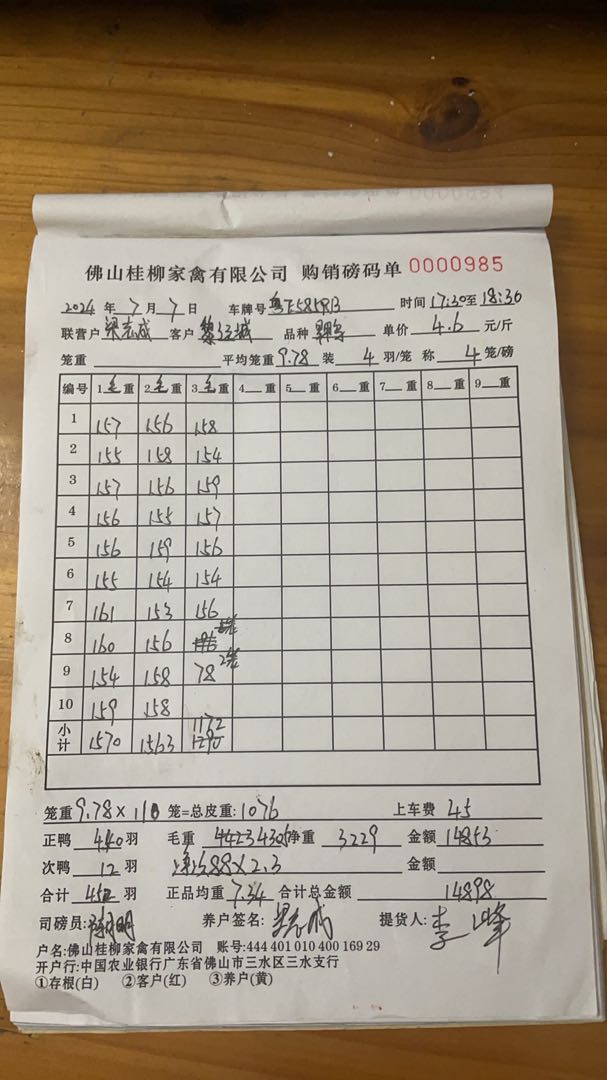 佛山桂柳家禽有限公司 购销磅码单 0000985
2024 年 7 月 7 日 车牌号 时间 17:30 至 18:30
联营户 梁志成 客户 品种 单价 4.6 元/斤
笼重 平均笼重 9.78 装 4 羽/笼 称 4 笼/磅
编号 1 毛 重 2 毛 重 3 毛 重 4 重 5 重 6 重 7 重 8 重 9 重
1 157 156 158
2 155 158 154
3 157 156 159
4 156 155 157
5 156 159 156
6 155 154 154
7 161 153 156
8 160 156
9 154 158 78 2笼
10 159 158
小计 1570 1563 1172
笼重 9.78 × 110 笼=总皮重: 1076 上车费 45
正鸭 440 羽 毛重 4423 4305 净重 3229 金额 14853
次鸭 12 羽 88×2.3 金额
合计 452 羽 正品均重 7.34 合计总金额 14898
司磅员: 养户签名: 梁志成 提货人: 李峰
户名:佛山桂柳家禽有限公司 账号:444 401 010 400 169 29
开户行:中国农业银行广东省佛山市三水区三水支行
①存根(白) ②客户(红) ③养户(黄)